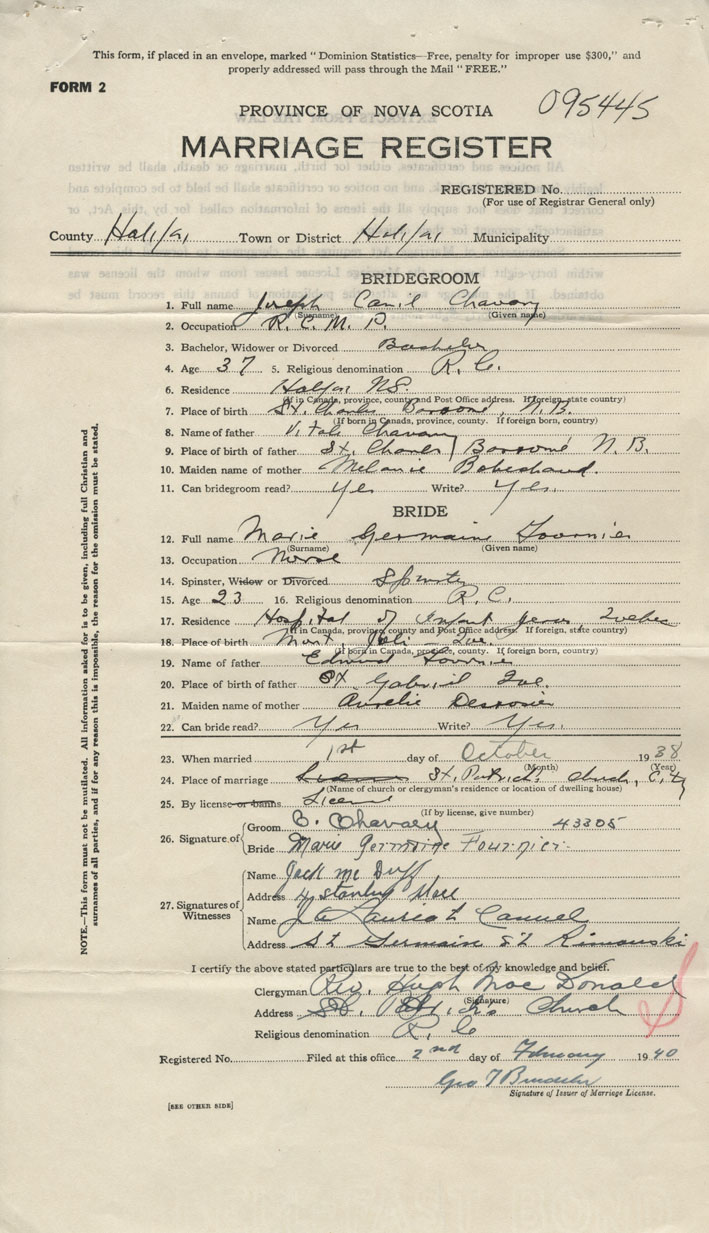 This form, if placed in an envelope, marked "Dominion Statistics—Free, penalty for improper use $300," and
properly addressed will pass through the Mail "FREE."
FORM 2
PROVINCE OF NOVA SCOTIA
095445
MARRIAGE REGISTER
REGISTERED No.
(For use of Registrar General only)
County Halifax Town or District Halifax Municipality
BRIDEGROOM
1. Full name Joseph Camil Chavary
(Surname) (Given name)
2. Occupation R. C. M. P.
3. Bachelor, Widower or Divorced Bachelor
4. Age 37 5. Religious denomination R. C.
6. Residence Halifax N.S.
(If in Canada, province, county and Post Office address. If foreign, state country)
7. Place of birth St. Charles N. B.
(If born in Canada, province, county. If foreign born, country)
8. Name of father Vitale Chavary
9. Place of birth of father St. Charles N. B.
10. Maiden name of mother Melanie
11. Can bridegroom read? Yes Write? Yes.
BRIDE
12. Full name Marie Germaine Fournier
(Surname) (Given name)
13. Occupation Nurse
14. Spinster, Widow or Divorced Spinster
15. Age 23 16. Religious denomination R. C.
17. Residence Hospital of Infant Jesus, Quebec
(If in Canada, province, county and Post Office address. If foreign, state country)
18. Place of birth Mont Joli Que.
(If born in Canada, province, county. If foreign born, country)
19. Name of father Edmund Fournier
20. Place of birth of father St Gabriel Que.
21. Maiden name of mother Aurelie Desrosier
22. Can bride read? Yes Write? Yes.
23. When married 1st day of October 1938
(Month) (Year)
24. Place of marriage St. Patrick's Church, City
(Name of church or clergyman's residence or location of dwelling house)
25. By license or banns License
(If by license, give number)
26. Signature of Groom C. Chavary 43305
Bride Marie Germaine Fournier
27. Signatures of Witnesses
Name Jack Mc Duff
Address 4 Stanley
Name
Address St Germain St Rimouski
I certify the above stated particulars are true to the best of my knowledge and belief.
Clergyman Rev. Hugh Mac Donald
(Signature)
Address St. Patrick's Church
Religious denomination R. C
Registered No. Filed at this office 2nd day of February 1940
Geo T
Signature of Issuer of Marriage License.
[SEE OTHER SIDE]
NOTE.—This form must not be mutilated. All information asked for is to be given, including full Christian and
surnames of all parties, and if for any reason this is impossible, the reason for the omission must be stated.